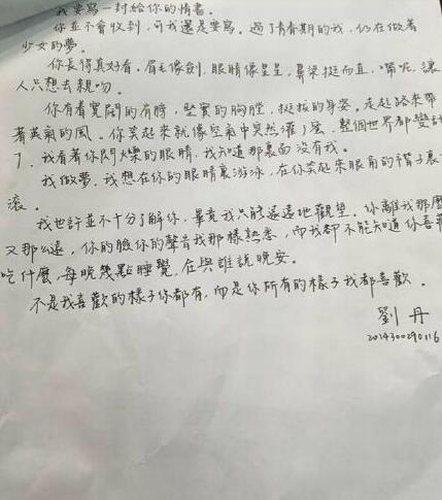 我要寫一封給你的情書。
你並不會收到，可我還是要寫。過了青春期的我，仍在做着
少女的夢。
你長得真好看。眉毛像劍，眼睛像星星，鼻梁挺而直，嘴呢，讓
人只想去親吻。
你有着寬闊的肩膀，堅實的胸膛，挺拔的身姿。走起路來帶
著英氣的風。你笑起來就像空氣中突然灌了蜜，整個世界都變甜
了，我看著你閃爍的眼睛，我知道那裏面沒有我。
我做夢，我想在你的眼睛裏游泳，在你笑起來眼角的褶子裏
滾。
我也許並不十分了解你，畢竟我只能遠遠地觀望。你離我那麼
又那么遠，你的臉你的聲音我那樣熟悉，而我都不能知道你喜
吃什麼，每晚幾點睡覺，在與誰說晚安。
不是我喜歡的樣子你都有，而是你所有的樣子我都喜歡。
劉丹
2014300290116